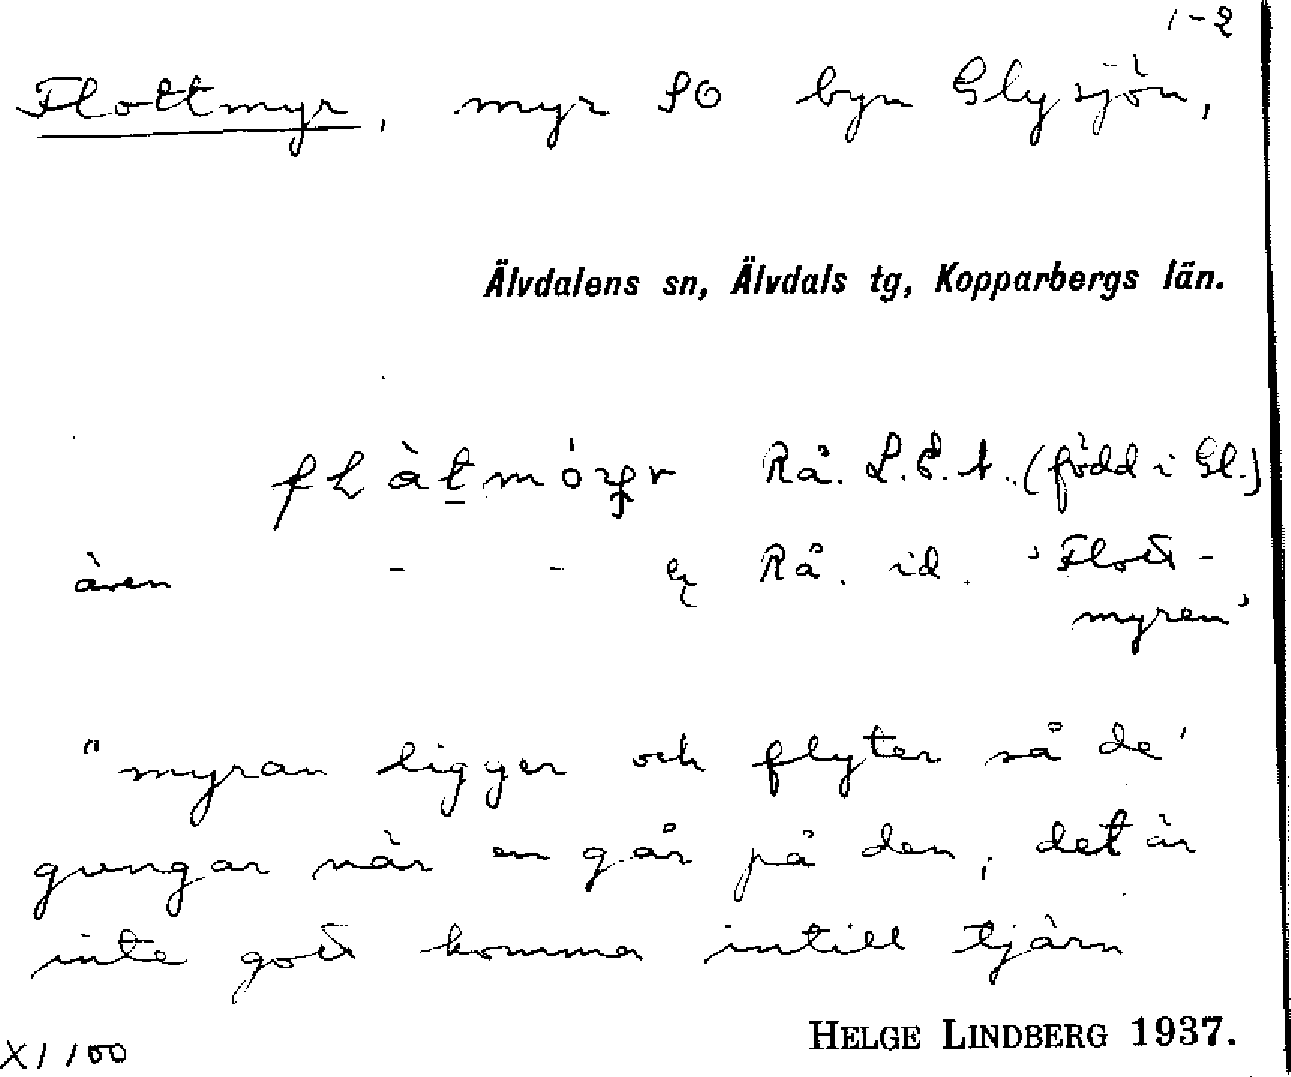 1-2
Flottmyr, myr SO byn Glysjön,
Älvdalens sn, Älvdals tg, Kopparbergs län.
Rå. L.E.A. (född i Gl.)
även - - Rå. id. 'Flott-
myren'
"myran ligger och flyter så de'
gungar när en går på den, det är
inte gott komma intill tjärn
HELGE LINDBERG 1937.
XI 100